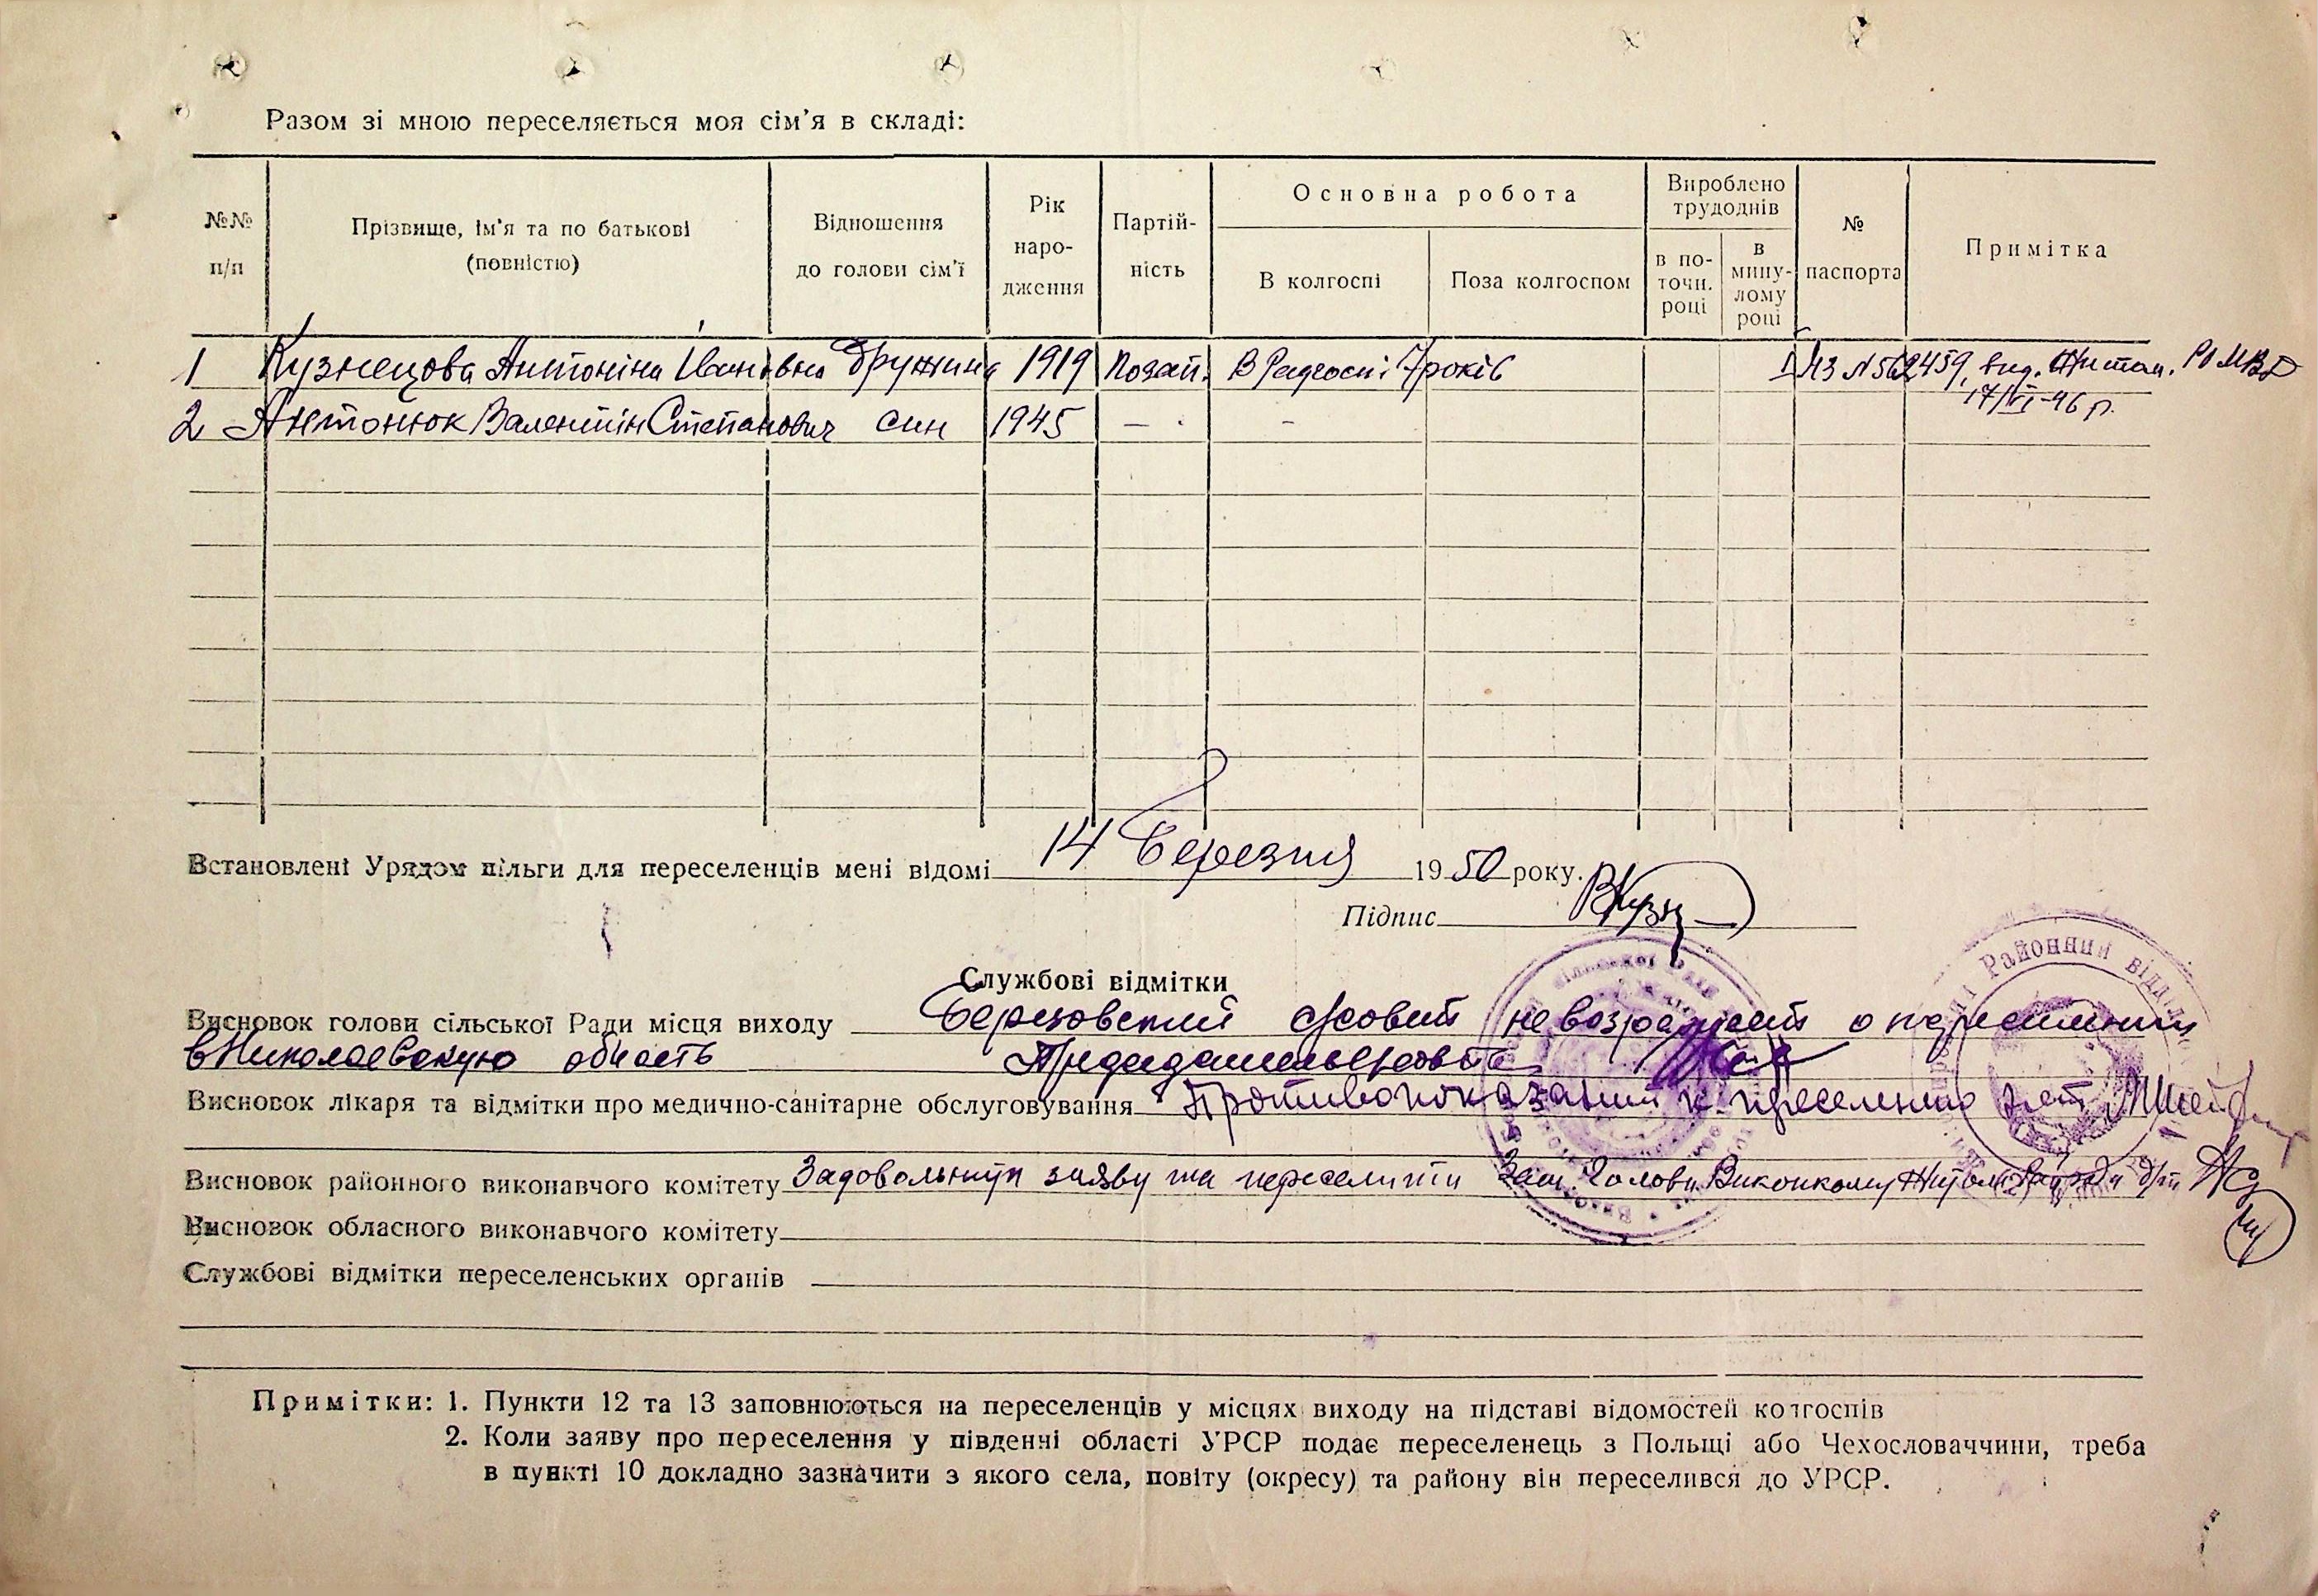 Разом зі мною переселяється моя сім'я в складі:
№№ п/п
Прізвище, ім'я та по батькові (повністю)
Відношення до голови сім'ї
Рік народження
Партійність
Основна робота
В колгоспі
Поза колгоспом
Вироблено трудоднів
в поточн. році
в минулому році
№ паспорта
Примітка
1 Кузнецова Антоніна Іванівна дружина 1919 Позап. В Радгоспі 7 років ЧЗ № 562459, вид. Житом. РО МВД
17/VI-46 р.
2 Антонюк Валентін Степанович син 1945 — -
Встановлені Урядом пільги для переселенців мені відомі 14 Березня 1950 року.
Підпис ВКузн
Службові відмітки
Висновок голови сільської Ради місця виходу Березовский с/совит не возражает о переселении
в Николаевскую область Председатель с/совета
Висновок лікаря та відмітки про медично-санітарне обслуговування Противопоказаний к переселению нет
Висновок районного виконавчого комітету Задовольнити заяву та переселити Зам. Голови Виконкому Житомир
Висновок обласного виконавчого комітету
Службові відмітки переселенських органів
Районний відділ
Примітки: 1. Пункти 12 та 13 заповнюються на переселенців у місцях виходу на підставі відомостей колгоспів
2. Коли заяву про переселення у південні області УРСР подає переселенець з Польщі або Чехословаччини, треба
в пункті 10 докладно зазначити з якого села, повіту (окресу) та району він переселився до УРСР.